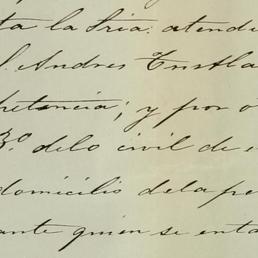 ta la Sria. atendi
S. Andres Tustla
petencia; y por o
3.º delo civil de e
domicilio dela pe
ante quien se enta